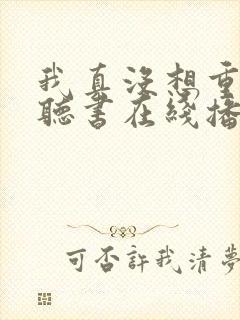 我真没想重
聽书在线播
可否許我清夢